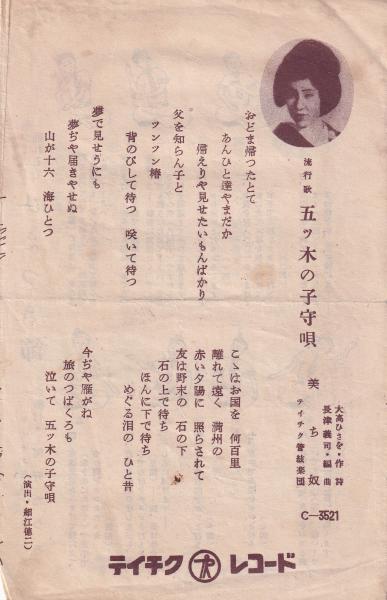 流行歌 五ッ木の子守唄
美ち奴
大高ひさを・作詩
長津義司・編曲
テイチク管絃楽団
C-3521
おどま帰つたとて
あんひと達やまだか
帰えりや見せたいもんばかり
父を知らん子と
ツンツン椿
背のびして待つ 咲いて待つ
夢で見せうにも
夢ぢや届きやせぬ
山が十六 海ひとつ
こゝはお国を 何百里
離れて遠く 満州の
赤い夕陽に 照らされて
友は野末の 石の下
石の上で待ち
ほんに下で待ち
めぐる泪の ひと昔
今ぢや雁がね
旅のつばくろも
泣いて 五ッ木の子守唄
(演出・細江徳二)
テイチク レコード